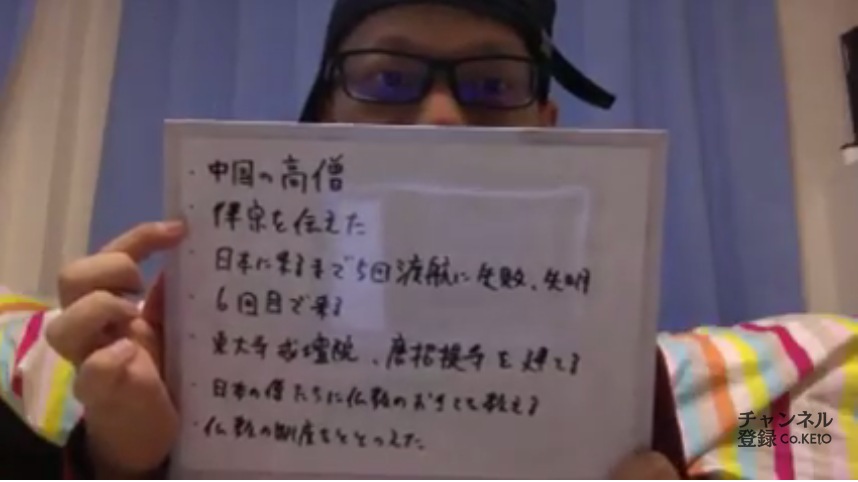 ・中国の高僧
・律宗を伝えた
・日本に来るまで5回渡航に失敗、失明
・6回目で来る
・東大寺戒壇院、唐招提寺を建てる
・日本の僧たちに仏教のおきてを教える
・仏教の制度をととのえた。
チャンネル
登録 Co.KE1O